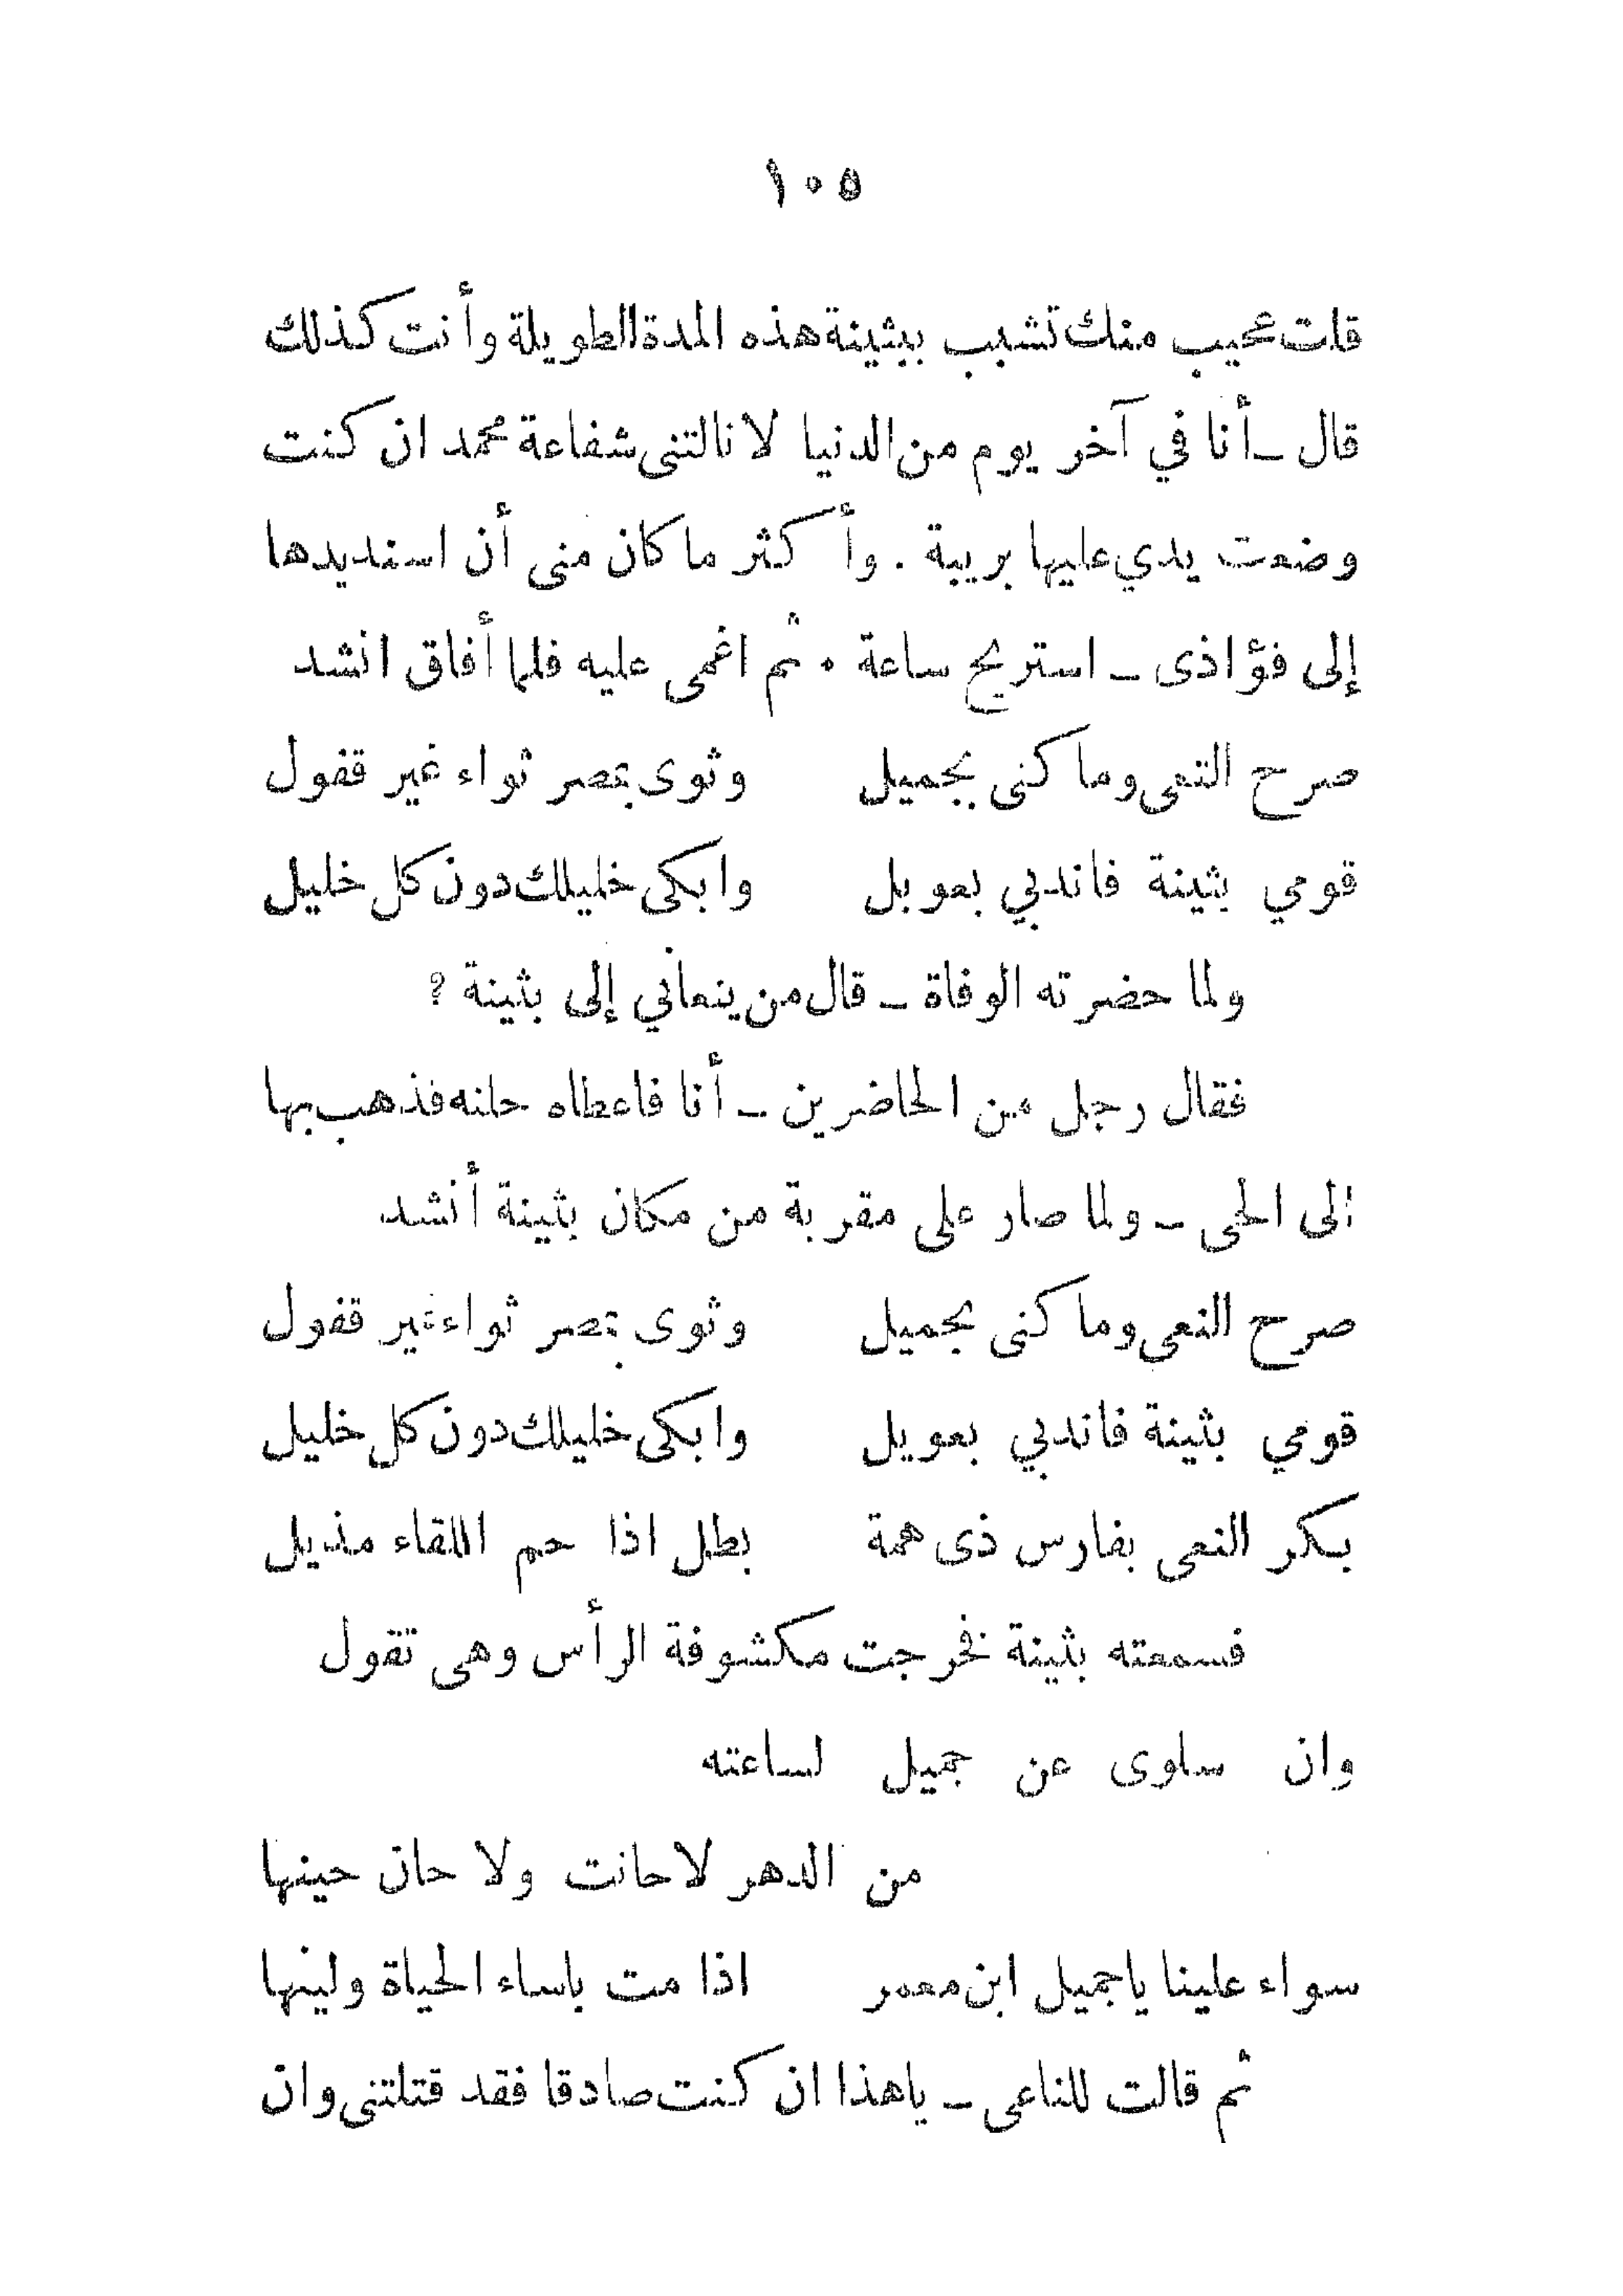 ١٠٥
قلت عجيب منك تشبب ببثينة هذه المدة الطويلة وأنت كذلك
قال ـ أنا في آخر يوم من الدنيا لا نالتنى شفاعة محمد ان كنت
وضعت يدي عليها بريبة . وأكثر ما كان منى أن اسند يدها
إلى فؤاذى ـ استريح ساعة . ثم اغمى عليه فلما أفاق انشد
صرح النعى وما كنى بجميل وثوى بمصر ثواء غير قفول
قومي بثينة فاندبي بعويل وابكى خليلك دون كل خليل
ولما حضرته الوفاة ـ قال من ينعاني إلى بثينة ؟
فقال رجل من الحاضرين ـ أنا فاعطاه حلته فذهب بها
إلى الحى ـ ولما صار على مقربة من مكان بثينة أنشد
صرح النعى وما كنى بجميل وثوى بمصر ثواء غير قفول
قومي بثينة فاندبي بعويل وابكى خليلك دون كل خليل
بكر النعى بفارس ذى همة بطل اذا حم اللقاء مذيل
فسمعته بثينة فخرجت مكشوفة الرأس وهى تقول
وان سلوى عن جميل لساعته
من الدهر لاحانت ولا حان حينها
سواء علينا ياجميل ابن معمر اذا مت باساء الحياة ولينها
ثم قالت للناعى ـ ياهذا ان كنت صادقا فقد قتلتنى وان